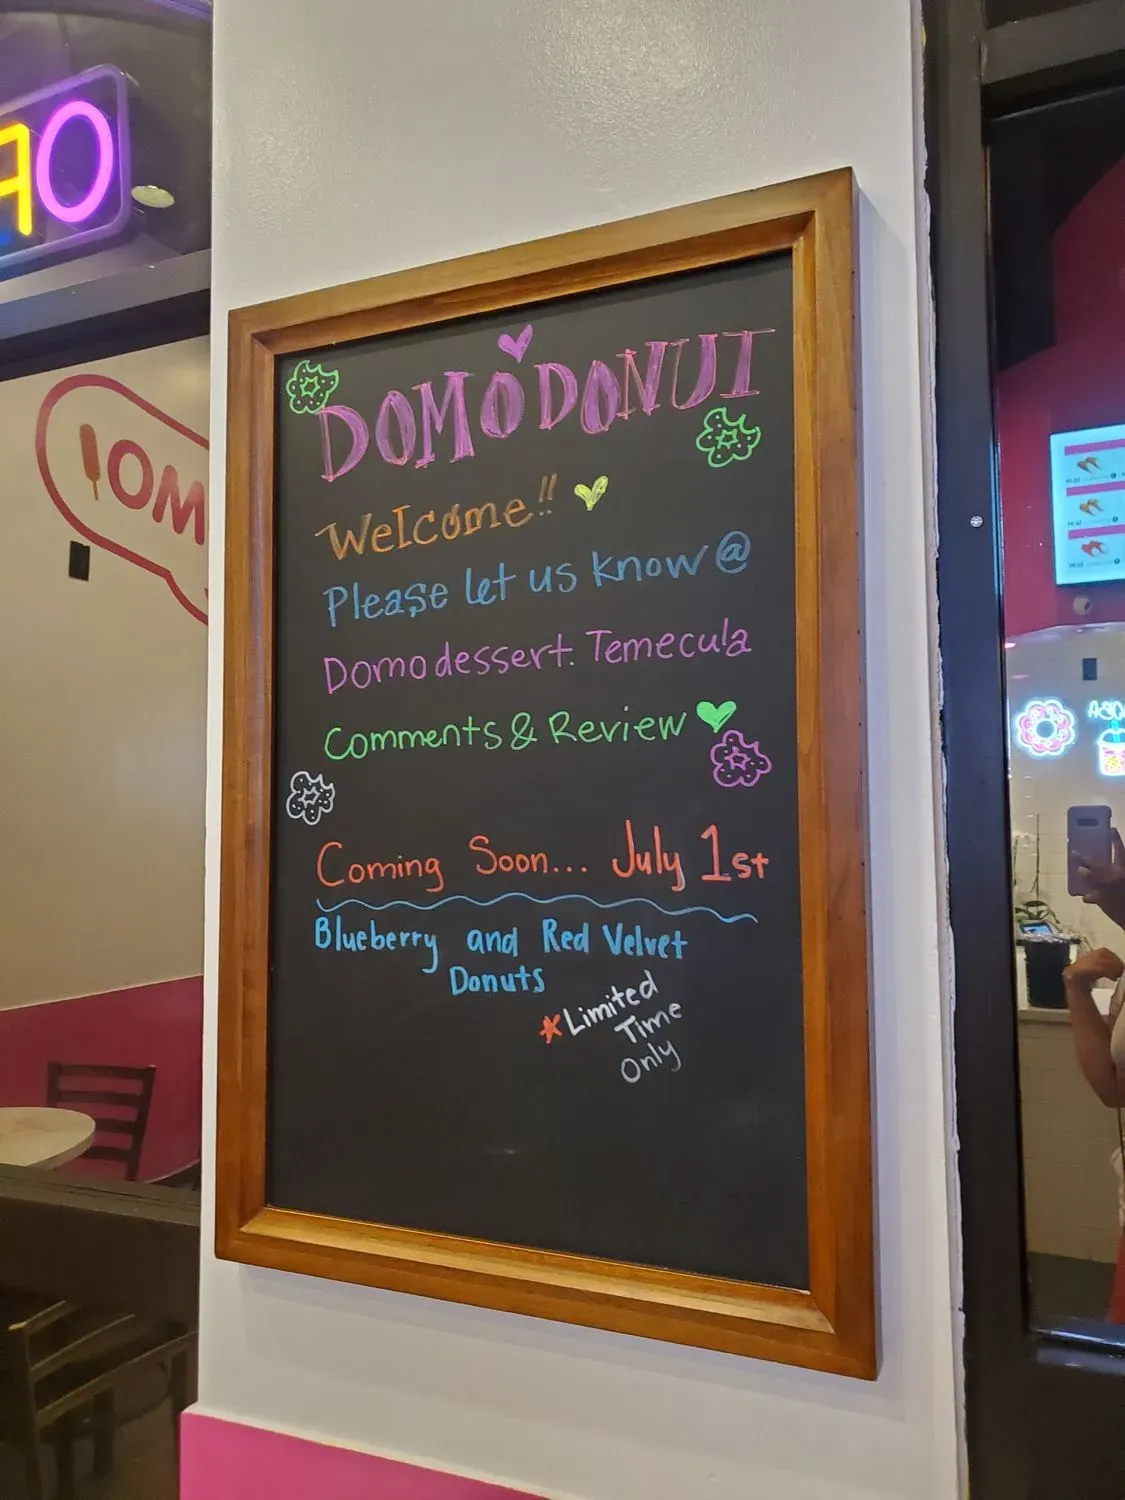 DOMO DONUT
Welcome!!
Please let us know @
Domodessert. Temecula
Comments & Review
Coming Soon... July 1st
Blueberry and Red Velvet
Donuts
*Limited
Time
Only